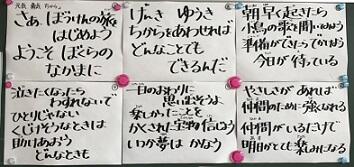 元気 勇気 ちから
さあ ぼうけんの旅
はじめよう
ようこそ ぼくらの
なかまに
げんき ゆうき
ちからをあわせれば
どんなことでも
できるんだ
朝早く起きたら
小鳥の歌を聞いてみよう
準備ができたらでかけよう
今日が待っている
泣きたくなったら
わすれないで
ひとりじゃない
くじけそうなときは
助けあおう
どんなときも
一日のおわりに
思い出そうよ
楽しかったことを
かくされた宝物 信じよう
いつか夢は かなう
やさしさが あれば
仲間のために強くなれる
仲間がいるだけで
明日がとても楽しみになる